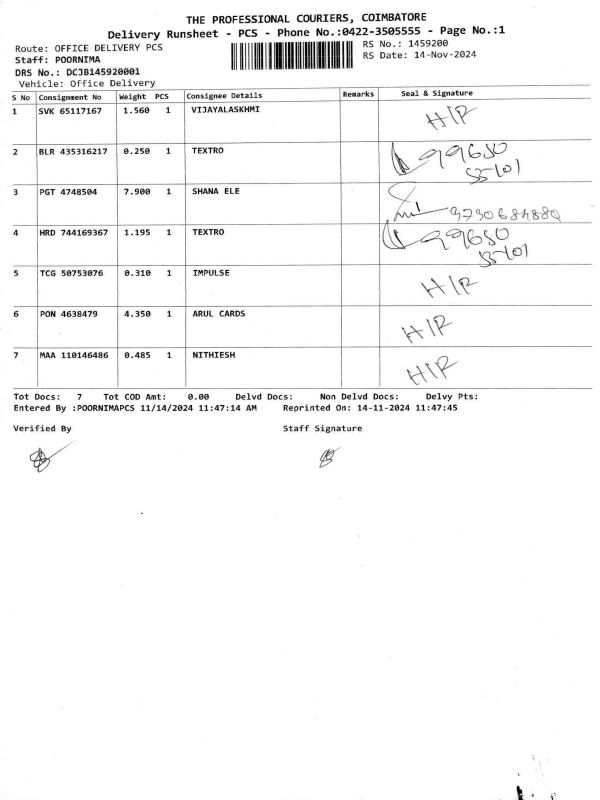 THE PROFESSIONAL COURIERS, COIMBATORE
Delivery Runsheet - PCS - Phone No.:0422-3505555 - Page No.:1
Route: OFFICE DELIVERY PCS
RS No.: 1459200
Staff: POORNIMA
RS Date: 14-Nov-2024
DRS No.: DCJB145920001
Vehicle: Office Delivery
S No Consignment No Weight PCS Consignee Details Remarks Seal & Signature
1 SVK 65117167 1.560 1 VIJAYALASKHMI H/R
2 BLR 435316217 0.250 1 TEXTRO 99650
55101
3 PGT 4748504 7.900 1 SHANA ELE 9750684880
4 HRD 744169367 1.195 1 TEXTRO 99650
55101
5 TCG 50753076 0.310 1 IMPULSE H/R
6 PON 4638479 4.350 1 ARUL CARDS H/R
7 MAA 110146486 0.485 1 NITHIESH H/R
Tot Docs: 7 Tot COD Amt: 0.00 Delvd Docs: Non Delvd Docs: Delvy Pts:
Entered By :POORNIMAPCS 11/14/2024 11:47:14 AM Reprinted On: 14-11-2024 11:47:45
Verified By Staff Signature